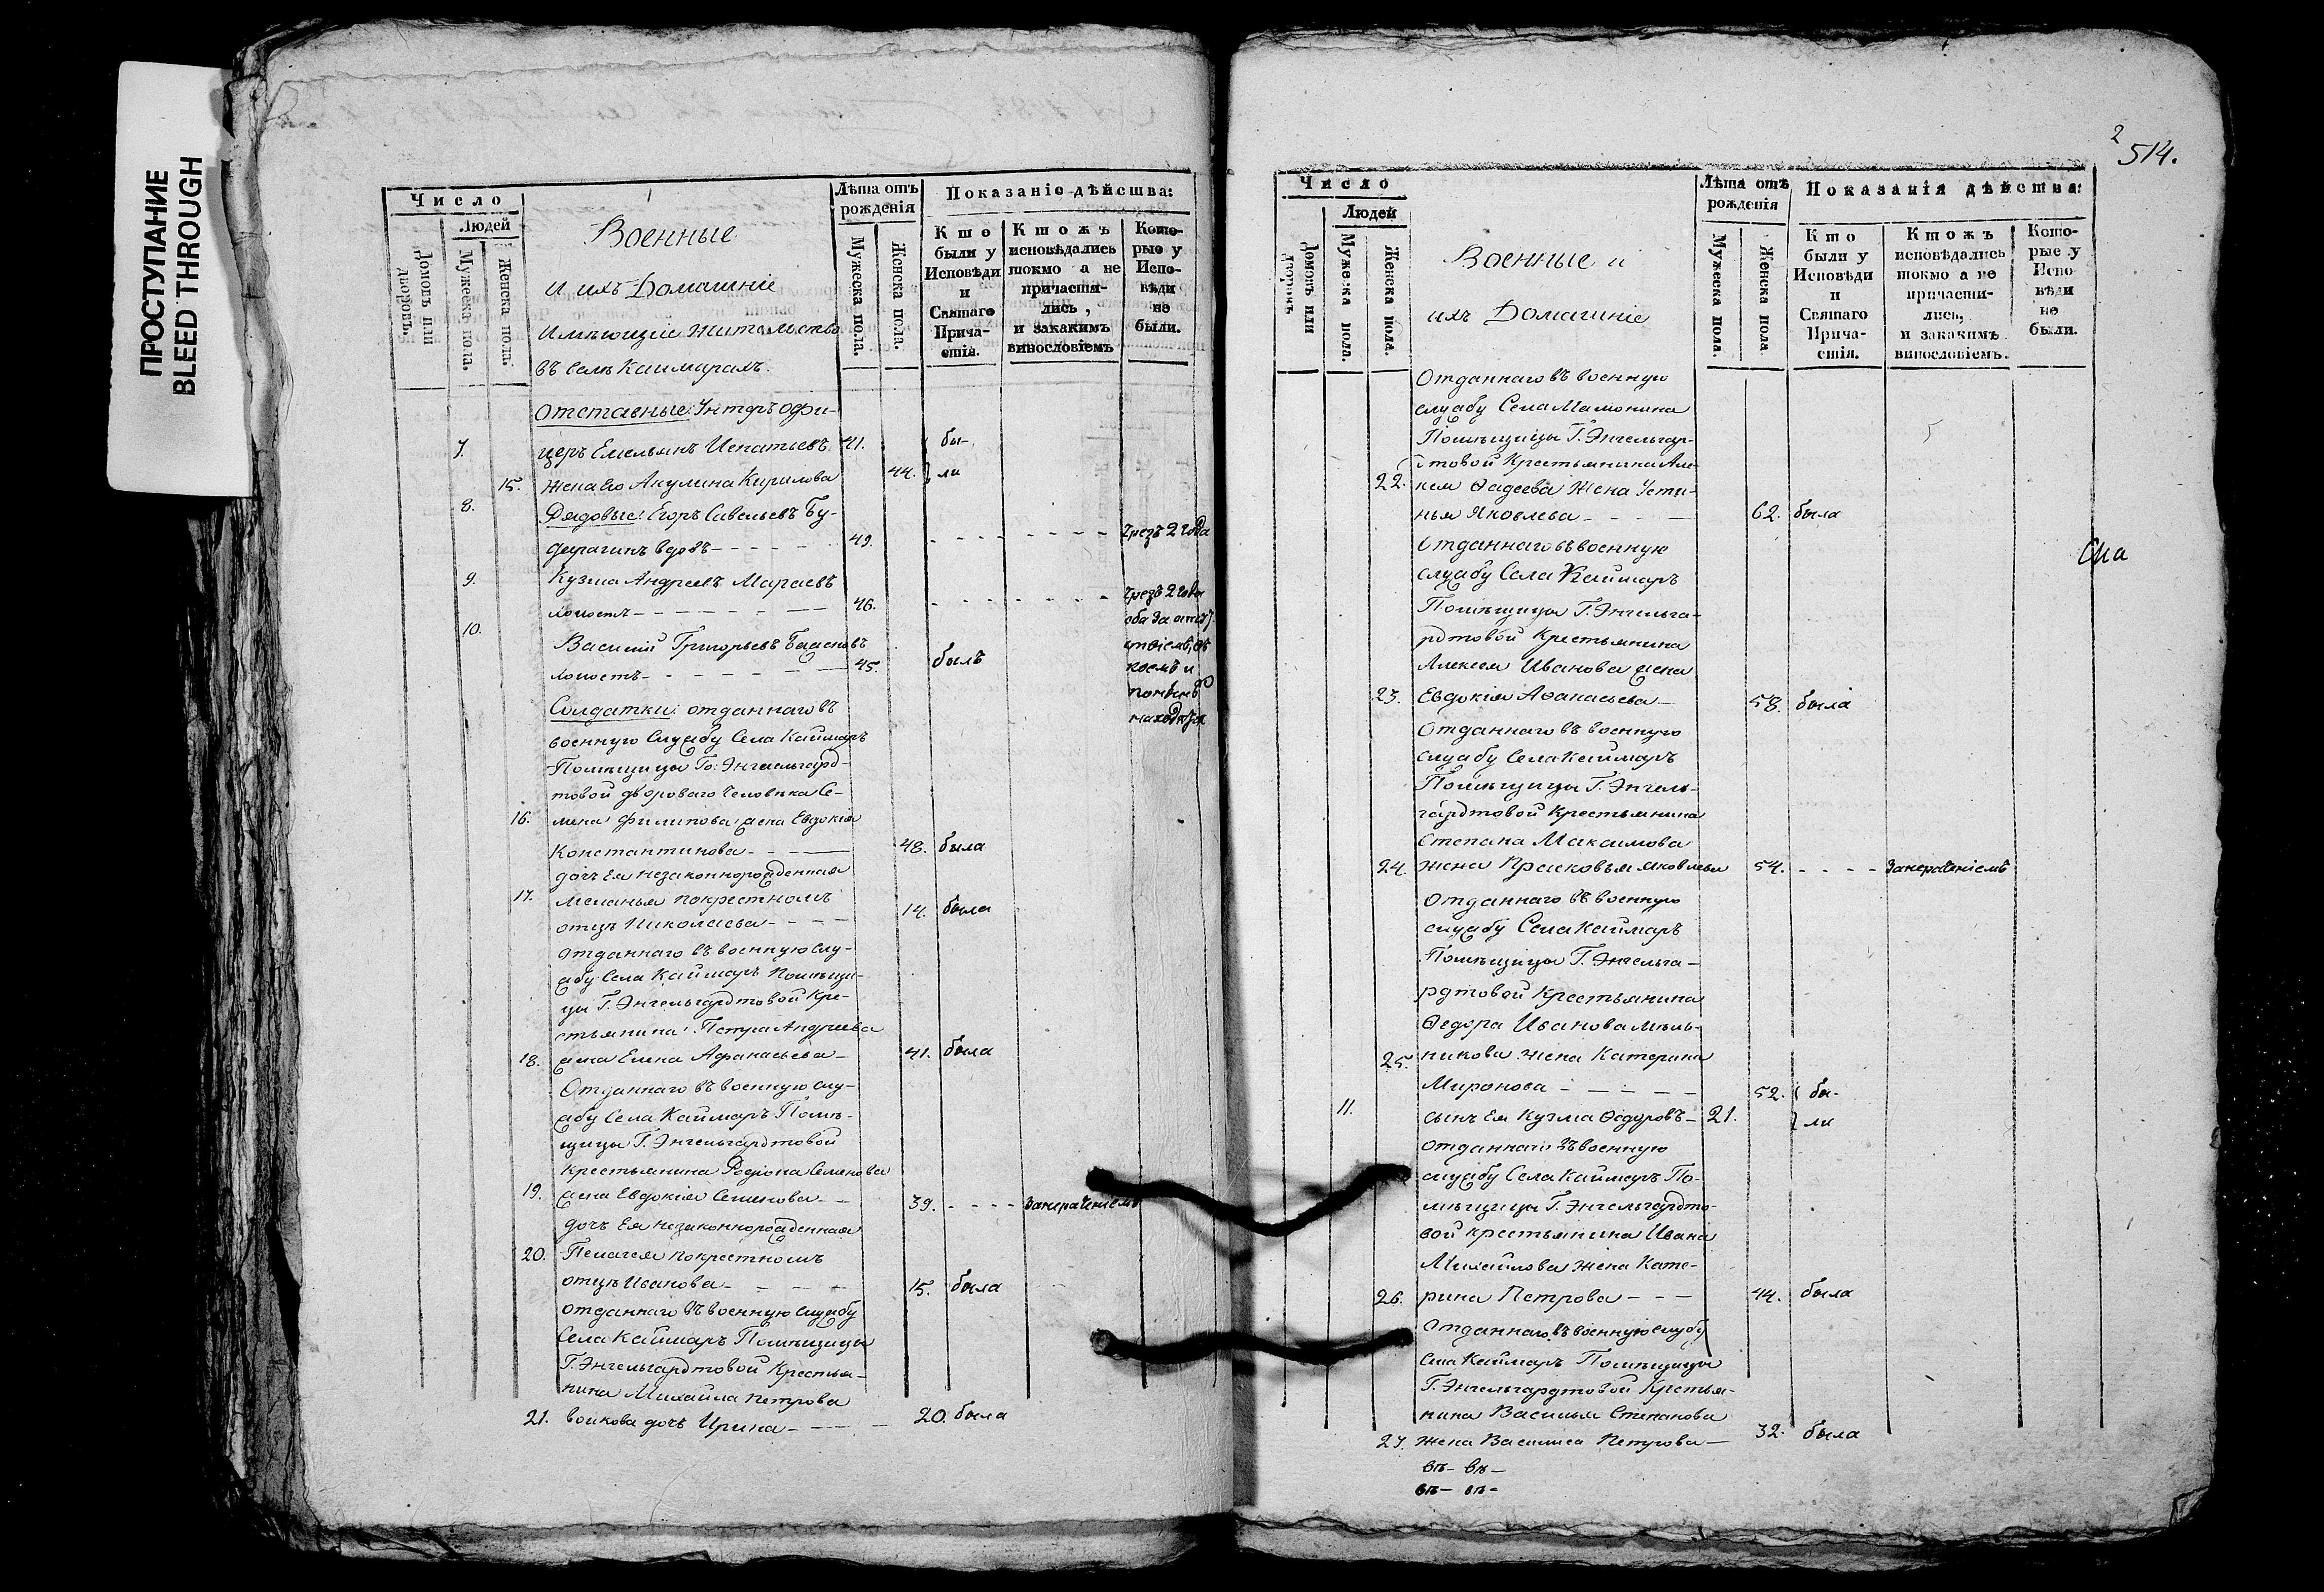 ПРОСТУПАНИЕ
BLEED THROUGH
Число
Людей
Домовъ или дворовъ.
Мужеска пола.
Женска пола.
Военные
и ихъ Домашніе
имѣющіе жительство
въ селѣ Каимарахъ.
Лѣта отъ рожденія
Мужеска пола.
Женска пола.
Показаніе дѣйства:
Кто были у Исповѣди и Святаго Причастія.
Ктожъ исповѣдались токмо а не причастились, и закакимъ винословіемъ
Которые у Исповѣди не были.
отставные: Унтеръ офи-
7. церъ Емельянъ Игнатьевъ 41. бы-
15. жена Его Акулина Кирилова 44. ли
8. Рядовые: Егоръ Савельевъ Бу-
вдовъ - - - - 49. - - - - - - - чрезъ 2 года
9. Кузма Андреевъ Мараевъ
холостъ - - - - - - 46. - - - - - - - чрезъ 2 года
оба за
10. Василий Григорьевъ
холостъ - - - - - - 45. былъ
Солдатки: отданнаго въ
военную Службу Села Каймаръ
Помѣщицы Го: Энгельгард-
товой двороваго человѣка Се-
16. мена Филипова жена Евдокия
Константинова - - - 48. была
дочь Ея незаконнорожденная
17. Меланья покрестномъ
отцѣ Николаева - - - - 14. была
отданнаго въ военную слу-
жбу Села Каймаръ Помѣщи-
цы Г. Энгельгардтовой Кре-
стьянина Петра Андреева
18. жена Елена Афанасьева - 41. была
Отданнаго въ военную слу-
жбу Села Каймаръ Помѣ-
щицы Г. Энгельгардтовой
крестьянина Родіона Семенова
19. жена Евдокія Семенова - - 39. - - - - занерачениемъ
дочь Ея незаконнорожденная
20. Пелагея покрестномъ
отцѣ Иванова - - - - 15. была
отданнаго въ военную службу
Села Каймаръ Помѣщицы
Г. Энгельгардтовой Крестья-
нина Михайла Петрова
21. Волкова дочь Ирина - - - 20. была
2
514.
Число
Людей
Домовъ или дворовъ
Мужеска пола.
Женска пола.
Военные и
ихъ Домашніе
Лѣта отъ рожденія
Мужеска пола.
Женска пола
Показанія дѣйства:
Кто были у Исповѣди и Святаго Причастія.
Ктожъ исповѣдались токмо а не причастились, и закакимъ винословіемъ.
Которые у Исповѣди не были.
Отданнаго въ военную
службу Села Мамонина
Помѣщицы Г. Энгельгар-
дтовой Крестьянина Але-
22. ксея Ѳадеева жена Усти-
нья Яковлева - - - 62. была
Отданнаго въ военную
службу Села Каймаръ
Помѣщицы Г. Энгельга-
рдтовой Крестьянина
Алексея Иванова жена
23. Евдокія Аѳанасьева - 58. была
Отданнаго въ военную
службу Села Каймаръ
Помѣщицы Г. Энгель-
гардтовой Крестьянина
Степана Максимова
24. жена Прасковья Яковлева 54. - - - - занерачениемъ
Отданнаго въ военную
службу Села Каймаръ
Помѣщицы Г. Энгельга-
рдтовой Крестьянина
Ѳедора Иванова мѣль-
25. никова жена Катерина
Миронова - - - - - 52. бы-
11. сынъ Ея Кузма Ѳедоровъ - 21. ли
отданнаго въ военную
службу Села Каймаръ По-
мѣщицы Г. Энгельгардто-
вой крестьянина Ивана
Михайлова жена Кате-
26. рина Петрова - - - 44. была
Отданнаго въ военную службу
Села Каймаръ Помѣщицы
Г. Энгельгардтовой Крестья-
нина Василья Степанова
27. жена Василиса Петрова - 32. была